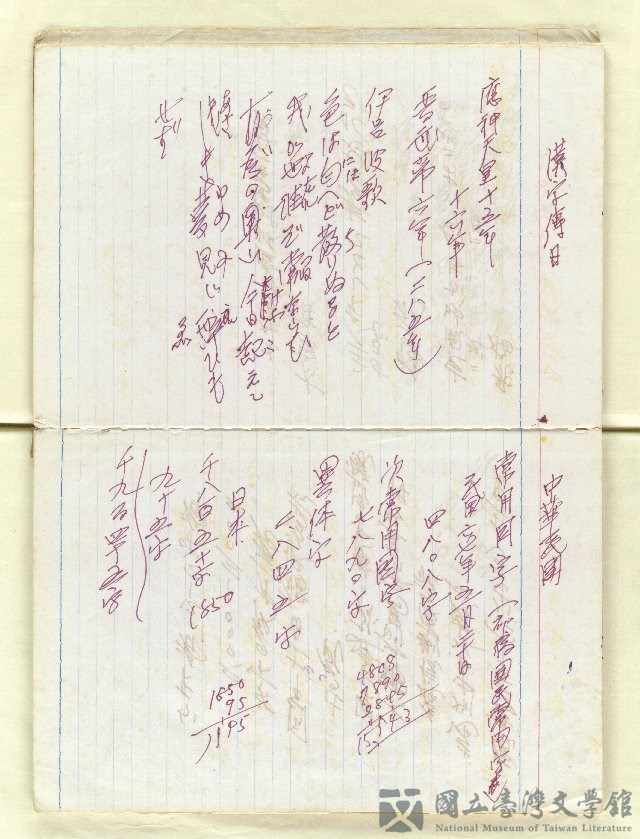 漢字傳日
應神天皇十五年
十六年
晉武帝六年(二八五年)
伊呂波歌
色は匂へど散りぬると
我が世誰ぞ常ならむ
有為の奥山今日越えて
浅き夢見じ酔ひも
せず
中華民國
常用國字(
五月二十日
四八〇八字
次常用國字
七八九〇字
4808
7890
2845
15543
異体字
二八四五字
日本
千八百五十字 1850
九十五字
1850
95
1945
千九百四十五字
國立臺灣文學館
National Museum of Taiwan Literature